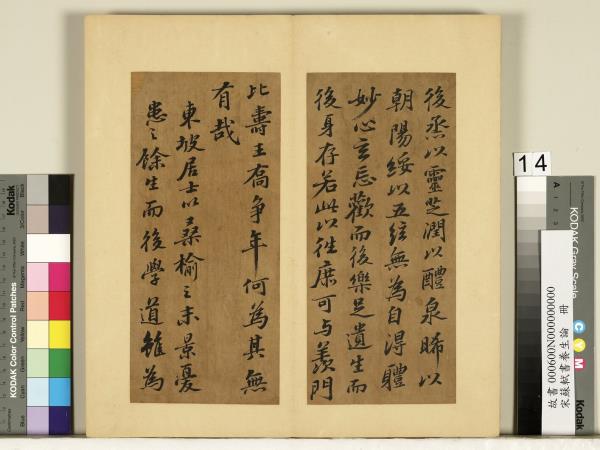 後烝以靈芝潤以醴泉晞以
朝陽綏以五絃無為自得體
妙心玄忘歡而後樂足遺生而
後身存若此以往庶可与羨門
比壽王喬爭年何為其無
有哉
東坡居士以桑榆之末景憂
患之餘生而後學道雖為
14
故書 000600N000000000
宋蘇軾書養生論 冊
KODAK Gray Scale
C Y M
Kodak
A 1 2 3
Kodak
KODAK Color Control Patches
Blue
Cyan
Green
Yellow
Red
Magenta
White
3/Color
Black